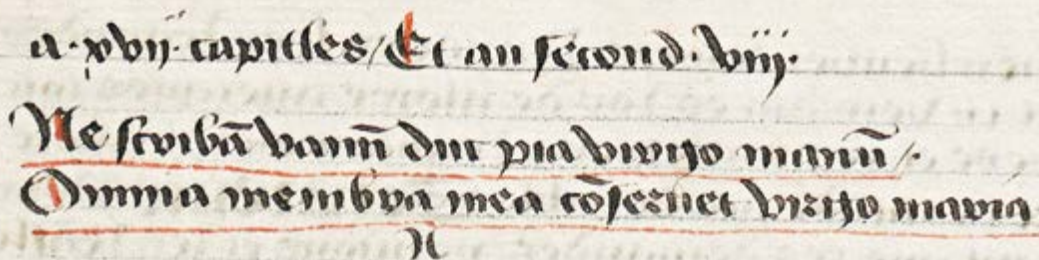 a·xvij· capitles / Et au second· viij·
Ne scribā vanū duc pia virgo manū /·
Omnia membra mea cōseruet virgo maria